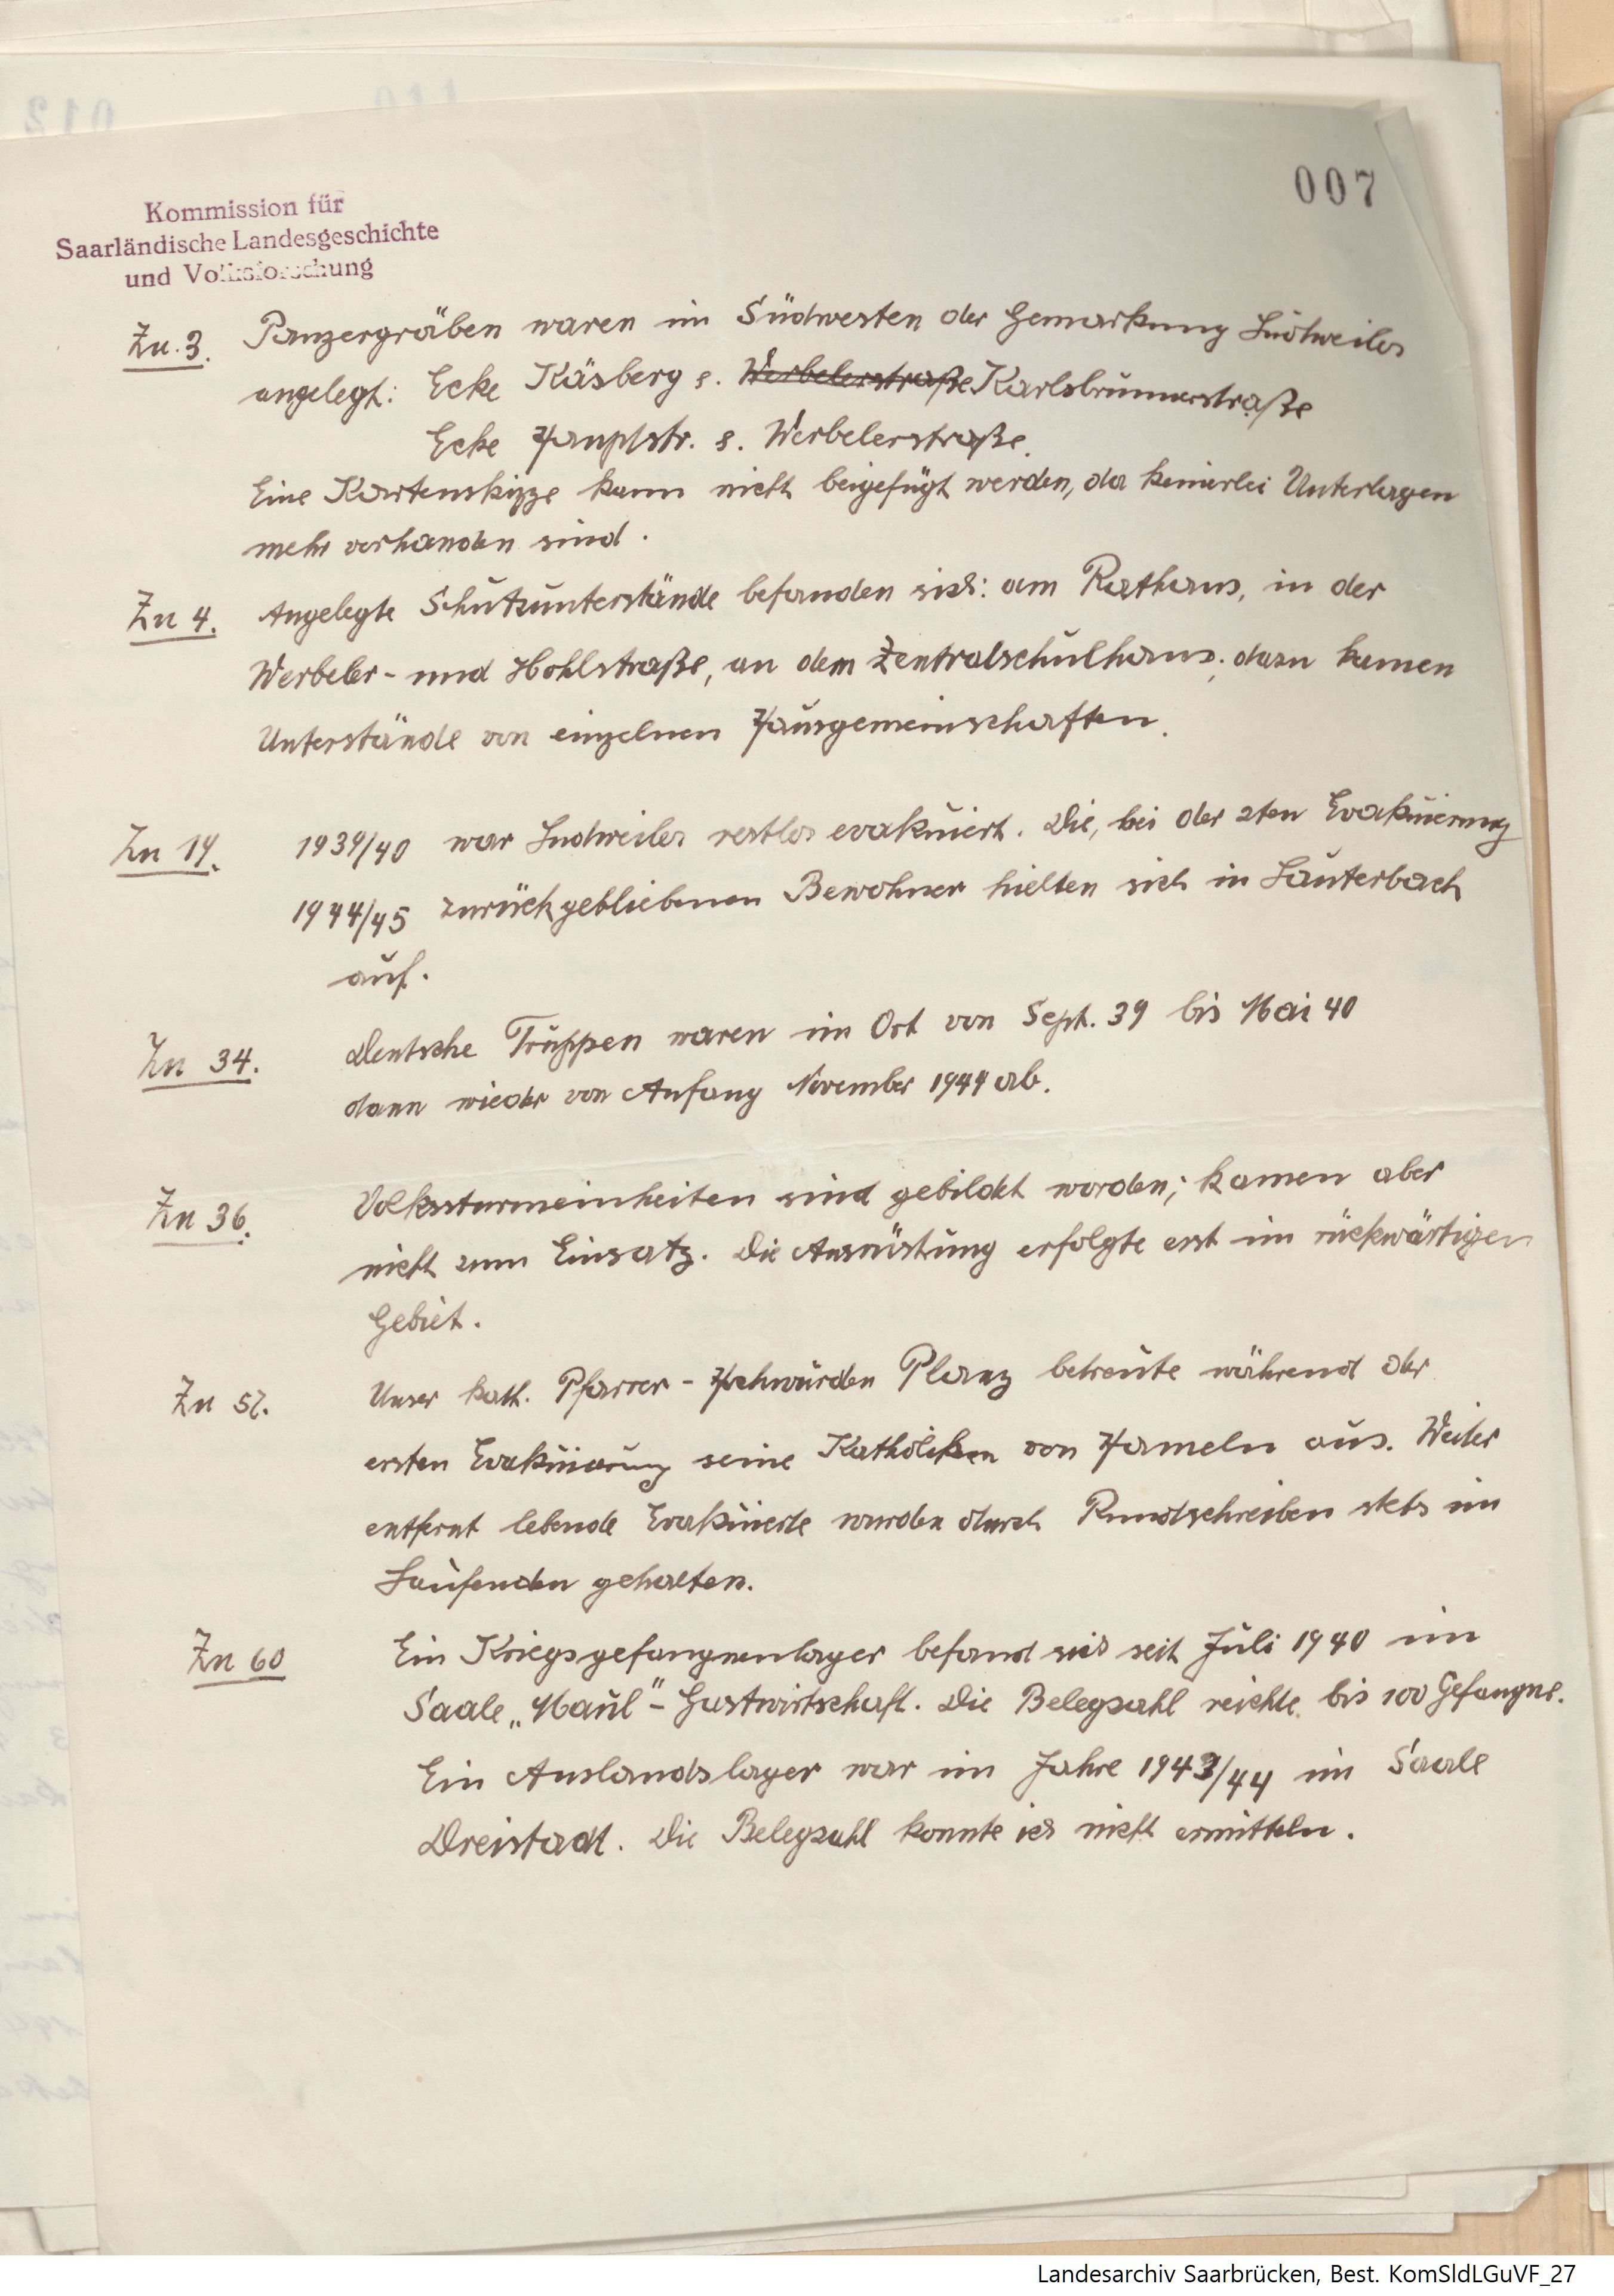 007
Kommission für
Saarländische Landesgeschichte
und Volksforschung
Zu. 3. Panzergräben waren im Südwesten der Gemarkung Ludweiler
angelegt: Ecke Käsberg s. Werbelerstraße Karlsbrunnerstraße
Ecke Hauptstr. s. Werbelerstraße.
Eine Kartenskizze kann nicht beigefügt werden, da keinerlei Unterlagen
mehr vorhanden sind.
Zu 4. Angelegte Schutzunterstände befanden sich: am Rathaus, in der
Werbeler- und Hohlstraße, an dem Zentralschulhaus; dazu kamen
Unterstände von einzelnen Hausgemeinschaften.
Zu 19. 1939/40 war Ludweiler restlos evakuiert. Die, bei der 2ten Evakuierung
1944/45 zurückgebliebenen Bewohner hielten sich in Lauterbach
auf.
Zu 34. Deutsche Truppen waren im Ort von Sept. 39 bis Mai 40
dann wieder von Anfang November 1944 ab.
Zu 36. Volkssturmeinheiten sind gebildet worden; kamen aber
nicht zum Einsatz. Die Ausrüstung erfolgte erst im rückwärtigen
Gebiet.
Zu 57. Unser kath. Pfarrer - Hochwürden Planz betreute während der
ersten Evakuierung seine Katholiken von Hameln aus. Weiter
entfernt lebende Evakuierte wurden durch Rundschreiben stets im
Laufenden gehalten.
Zu 60 Ein Kriegsgefangnenlager befand sich seit Juli 1940 im
Saale „Maul" - Gastwirtschaft. Die Belegzahl reichte bis 100 Gefangne.
Ein Auslandslager war im Jahre 1943/44 im Saale
Dreistadt. Die Belegzahl konnte ich nicht ermitteln.
Landesarchiv Saarbrücken, Best. KomSldLGuVF_27